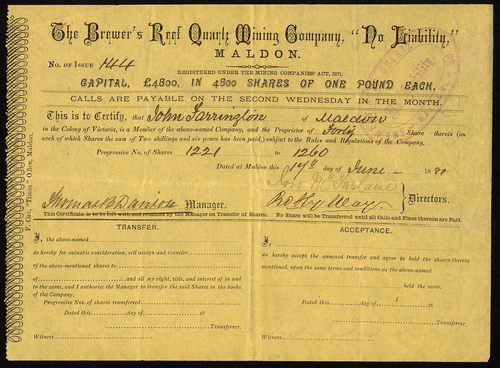 The Brewer's Reef Quartz Mining Company, "No Liability,"
MALDON.
No. of Issue 144
REGISTERED UNDER THE MINING COMPANIES' ACT, 1871.
CAPITAL, £4800, IN 4800 SHARES OF ONE POUND EACH.
CALLS ARE PAYABLE ON THE SECOND WEDNESDAY IN THE MONTH.
This is to Certify, that John of Maldon
in the Colony of Victoria, is a Member of the above-named Company, and the Proprietor of Forty Share therein (on
each of which Shares the sum of Two shillings and six pence has been paid,) subject to the Rules and Regulations of the Company.
Progressive No. of Shares 1221 to 1260
Dated at Maldon this 17th day of June 1880
Thomas Manager. Directors.
This Certificate is to be left with and retained by the Manager on Transfer of Shares. No Share will be Transferred until all Calls and Fines thereon are Paid.
TRANSFER.
I, the above-named
do hereby for valuable consideration, sell assign and transfer
of the above-mentioned shares to
of and all my right, title, and interest of in and
to the same, and I authorize the Manager to transfer the said Shares in the books
of the Company.
Progressive Nos. of shares transferred
Dated this day of 18
Transferrer.
Witness
ACCEPTANCE.
I,
do hereby accept the annexed transfer and agree to hold the shares therein
mentioned, upon the same terms and conditions as the above-named
held the same.
Dated this day of 18
Transferree.
Witness